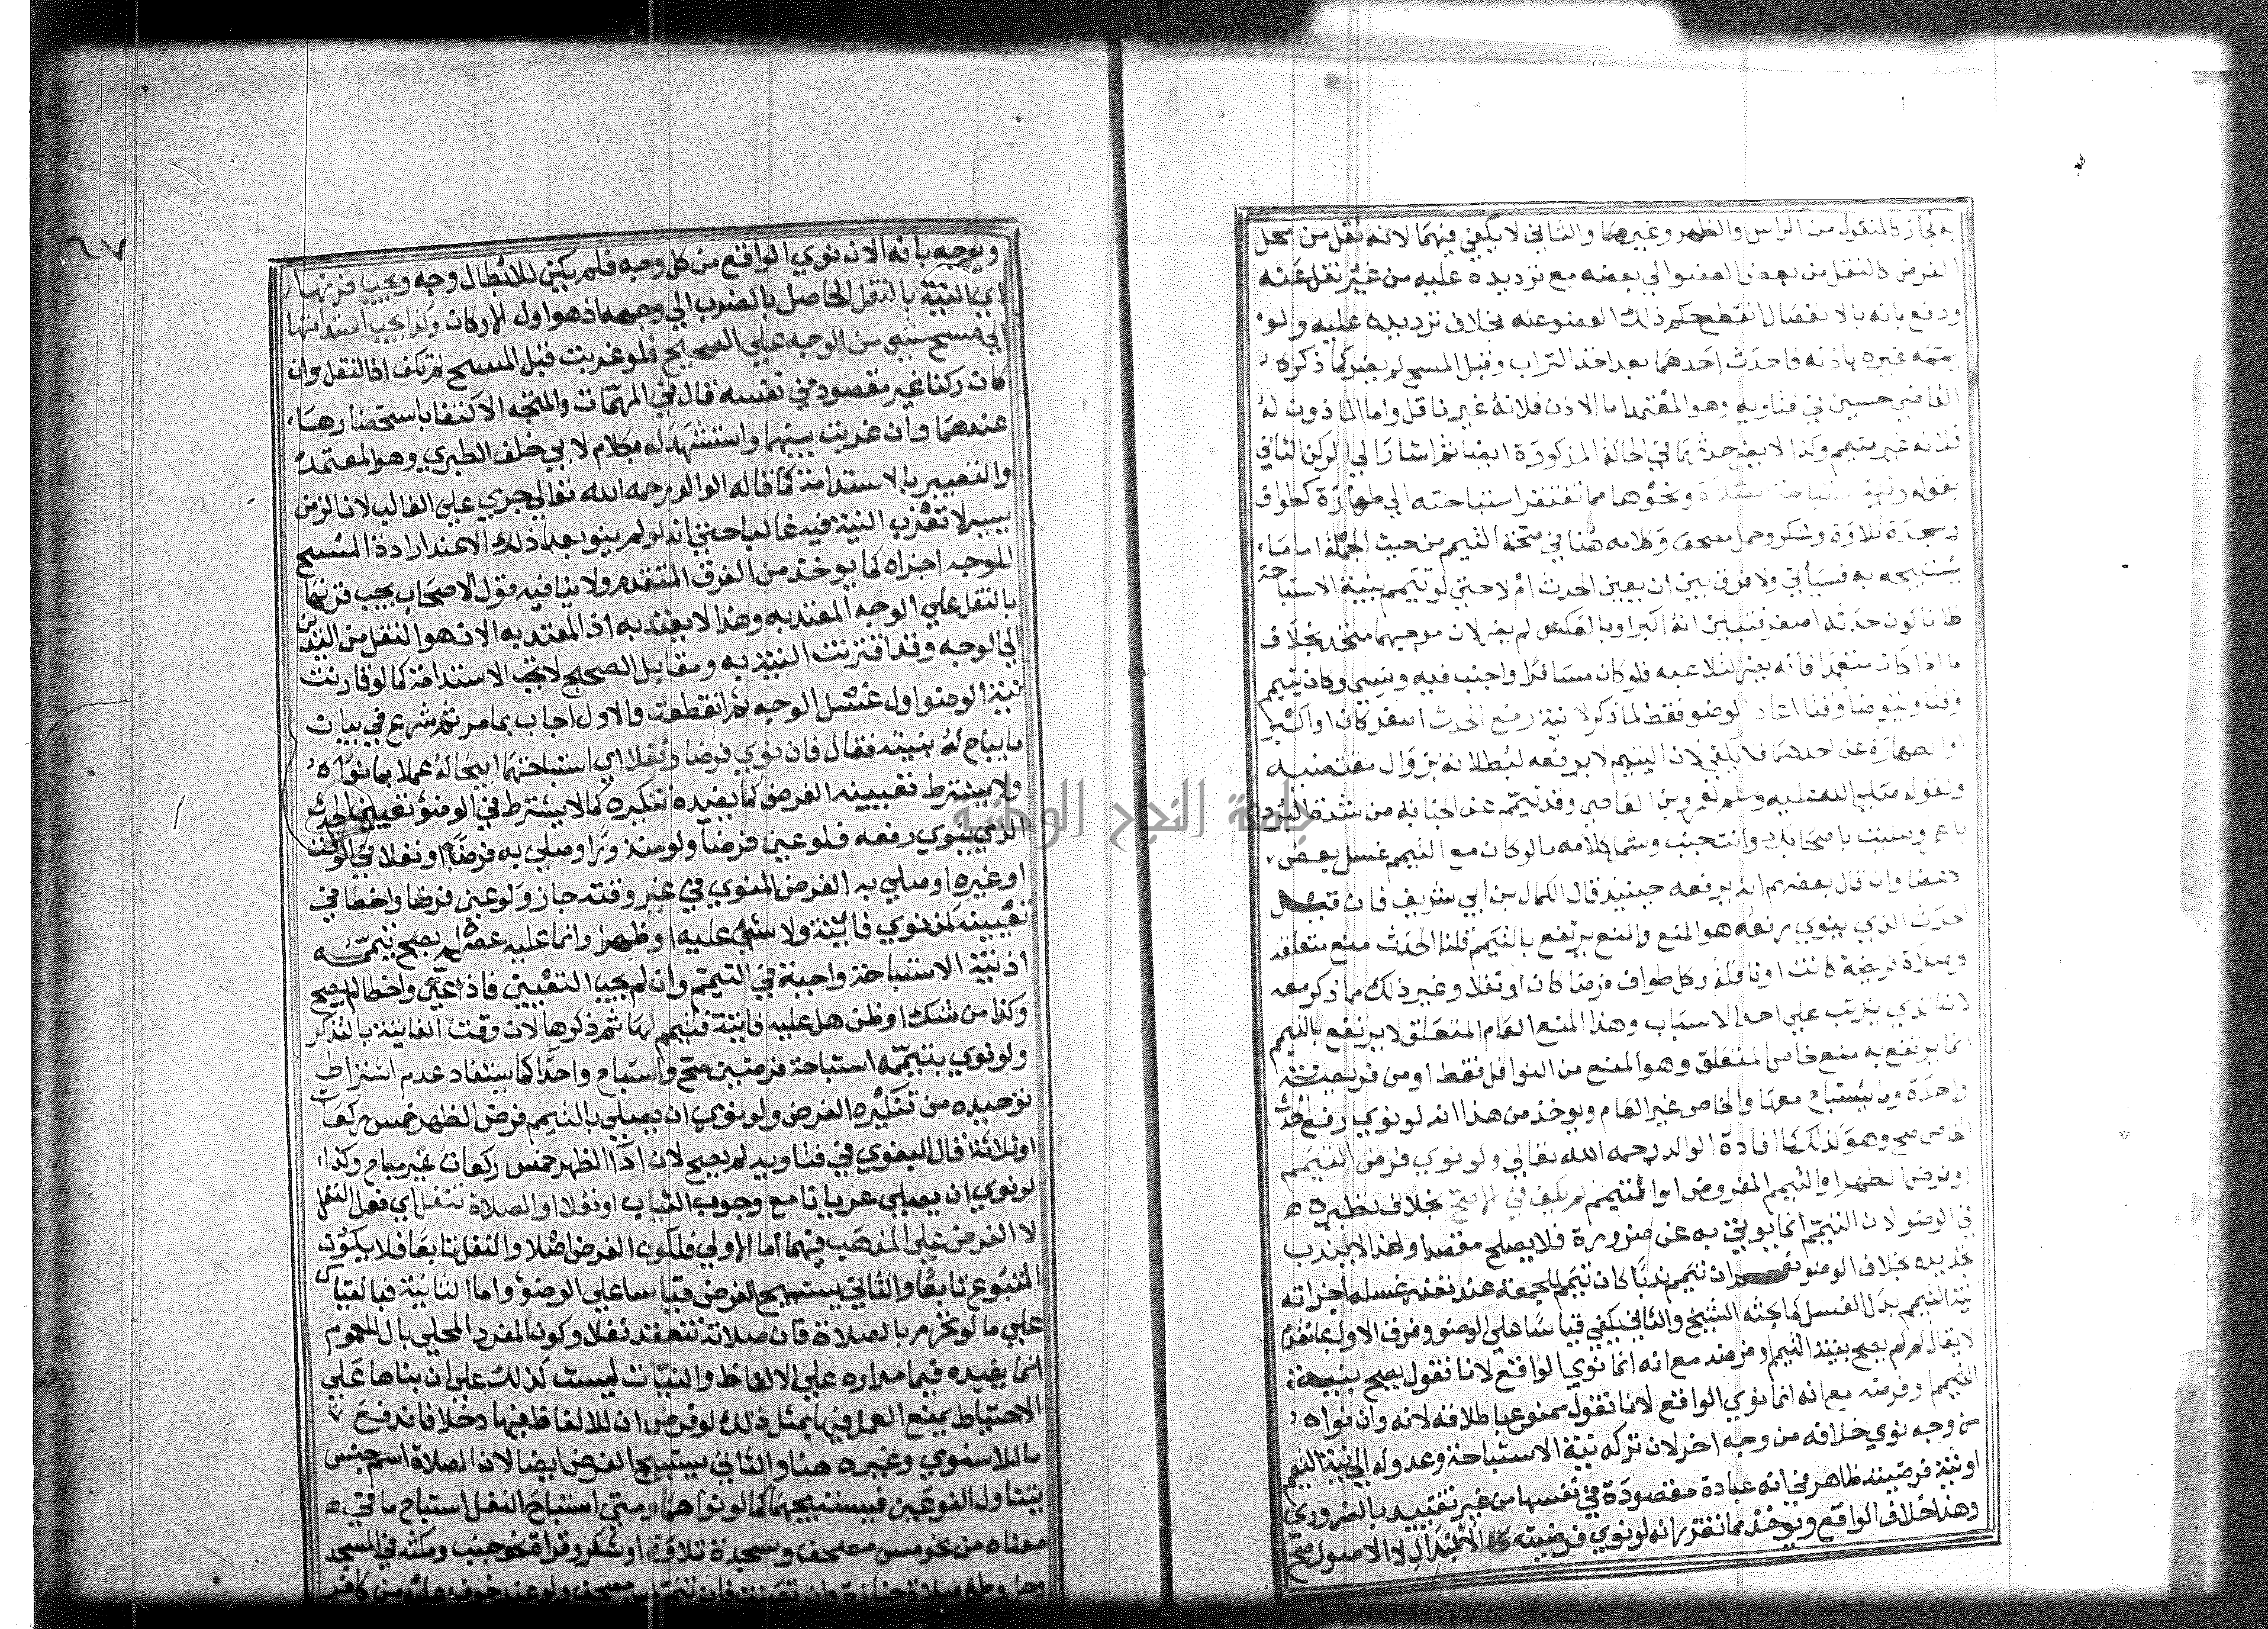 المنقول من الراس والظهر وغيرهما والثاني لا يكفي فيهما لانه نقل من محل
الفرض كالنقل من بعض العضو الي بعضه مع ترديده عليه من غير نقل عنه
ودفع بانه بالانفصال انقطع حكم ذلك العضو عنه بخلاف ترديده عليه ولو
يممه غيره باذنه فاحدث احدهما بعد اخذ التراب وقبل المسح لم يضر كما ذكره
القاضي حسين في فتاويه وهو المعتمد اما الاذن فلانه غير ناقل واما الماذون له
فلانه غير متيمم وكذا لا يضر حدثهما في الحالة المذكورة ايضا ثم اشار الي الركن الثاني
بقوله ونية استباحة الصلاة ونحوها مما تفتقر استباحته الي طهارة كطواف
وسجدة تلاوة وشكر وحمل مصحف وكلامه هنا في صحة التيمم من حيث الجملة اما ما
يستبيحه به فسياتي ولا فرق بين ان يعين الحدث ام لا حتي لو تيمم بنية الاستباحة
ظانا كون حدثه اصغر فتبين انه اكبر او بالعكس لم يضر لان موجبهما متحد بخلاف
ما اذا كان متعمدا فانه يضر لتلاعبه فلو كان مسافرا واجنب فيه ونسي وكان يتيمم
وقتا ويتوضا وقتا اعاد الوضو فقط لما ذكر لا نية رفع الحدث اصغر كان او اكبر
او الطهارة عن احدهما فلا يكفي لان التيمم لا يرفعه لبطلانه بزوال مقتضيه
ولقوله صلي الله عليه وسلم لعمرو بن العاصي وقد تيمم عن الجنابة من شدة البرد
يا عمرو صليت باصحابك وانت جنب وشمل كلامه ما لو كان مع التيمم غسل بعض
الاعضا وان قال بعضهم انه يرفعه حينيذ قال الكمال بن ابي شريف فان قيل
الحدث الذي ينوي رفعه هو المنع والمنع يرتفع بالتيمم قلنا الحدث منع متعلقه
كل صلاة فريضة كانت او نافلة وكل طواف فرضا كان او نفلا وغير ذلك مما ذكر معه
لانه الذي يترتب علي احد الاسباب وهذا المنع العام المتعلق لا يرتفع بالتيمم
انما يرتفع به منع خاص المتعلق وهو المنع من النوافل فقط او من فريضة
واحدة وما يستباح معها والخاص غير العام ويوخذ من هذا انه لو نوي رفع الحدث
الخاص صح وهو كذلك كما افاده الوالد رحمه الله تعالي ولو نوي فرض التيمم
او فرض الطهر او التيمم المفروض او المتيمم لم يكف في الاصح بخلاف نظيره
في الوضو لان التيمم انما يوتي به عن ضرورة فلا يصلح مقصدا ولهذا لا يندب
تجديده بخلاف الوضو نعم ان تيمم ندبا كان تيمم للجمعة عند تعذر غسله اجزاته
نية التيمم بدل الغسل كما بحثه الشيخ والثاني يكفي قياسا علي الوضو وفرق الاول بما تقدم
لا يقال لم لم يصح بنية التيمم او فرضه مع انه انما نوي الواقع لانا نقول يصح بنية
التيمم وفرضه مع انه انما نوي الواقع لانا نقول ممنوع باطلاقه لانه وان نواه
من وجه نوي خلافه من وجه اخر لان تركه نية الاستباحة وعدوله الي نية التيمم
او نية فرضيته ظاهر في انه عبادة مقصودة في نفسها من غير تقييد بالضرورة
وهذا خلاف الواقع ويوخذ مما تقرر انه لو نوي فرضيته الابدال لا الاصول صح
ويوجه بانه الان نوي الواقع من كل وجه فلم يكن للابطال وجه ويجب قرنها
اي النية بالنقل الحاصل بالضرب الي وجهه اذ هو اول الاركان وكذا يجب استدامتها
الي مسح شي من الوجه علي الصحيح فلو عزبت قبل المسح لم تكف اذ النقل وان
كان ركنا غير مقصود في نفسه قال في المهمات والمتجه الاكتفا باستحضارها
عندهما وان عزبت بينهما واستشهد له بكلام لابي خلف الطبري وهو المعتمد
والتعبير بالاستدامة كما قاله الوالد رحمه الله تعالي جري علي الغالب لان الزمن
يسير لا تعزب النية فيه غالبا حتي انه لو لم ينو بعد ذلك الا عند ارادة المسح
للوجه اجزاه كما يوخذ من الفرق المتقدم ولا ينافيه قول الاصحاب يجب قرنها
بالنقل علي الوجه المعتد به وهذا لا يعتد به اذ المعتد به الان هو النقل من اليدين
الي الوجه وقد اقترنت النية به ومقابل الصحيح لا تجب الاستدامة كما لو قارنت
نية الوضو اول غسل الوجه ثم انقطعت والاول اجاب بما مر ثم شرع في بيان
ما يباح له بنيته فقال فان نوي فرضا ونفلا اي استباحتهما ابيحا له عملا بما نواه
ولا يشترط تعيينه الفرض كما يفيده تنكيره كما لا يشترط في الوضؤ تعيين الحدث
الذي ينوي رفعه فلو عين فرضا ولو منذورا وصلي به فرضا او نفلا في الوقت
او غيره او صلي به الفرض المنوي في غير وقته جاز ولو عين فرضا واخطا في
تعيينه كمن نوي فايتة ولا شي عليه او ظهرا وانما عليه عصر لم يصح تيممه
اذ نية الاستباحة واجبة في التيمم وان لم يجب التعيين فاذا عين واخطا لم يصح
وكذا من شك او ظن هل عليه فايتة فتيمم لها ثم ذكرها لان وقت الفايتة بالتذكر
ولو نوي بتيممه استباحة فرضين صح واستباح واحدا كما يستفاد عدم اشتراط
توحيده من تنكيره الفرض ولو نوي ان يصلي بالتيمم فرض الظهر خمس ركعات
او ثلاثة قال البغوي في فتاويه لم يصح لان ادا الظهر خمس ركعات غير مباح وكذا
لو نوي ان يصلي عريانا مع وجود الثياب او نفلا او الصلاة تنفل اي فعل النفل
لا الفرض علي المذهب فيهما اما الاولي فلكون الفرض اصلا والنفل تابعا فلا يكون
المتبوع تابعا والثاني يستبيح الفرض قياسا علي الوضؤ واما الثانية فبالقياس
علي ما لو تحرم بالصلاة فان صلاته تنعقد نفلا وكون المفرد المحلي بال للعموم
انما يفيده فيما مداره علي الالفاظ والنيات ليست كذلك علي ان بناها علي
الاحتياط يمنع العمل فيها بمثل ذلك لو فرض ان للالفاظ فيها دخلا فاندفع
ما للاسنوي وغيره هنا والثاني يستبيح الفرض ايضا لان الصلاة اسم جنس
يتناول النوعين فيستبيحهما كما لو نواهما ومتي استباح النفل استباح ما في
معناه من نحو مس مصحف وسجدة تلاوة او شكر وقراة نحو جنب ومكثه في المسجد
وحل وطء وصلاة جنازة وان تعينت فان تيمم لمس مصحف ولو عند خوف عليه من كافر
٦٧
جامعة النجاح الوطنية